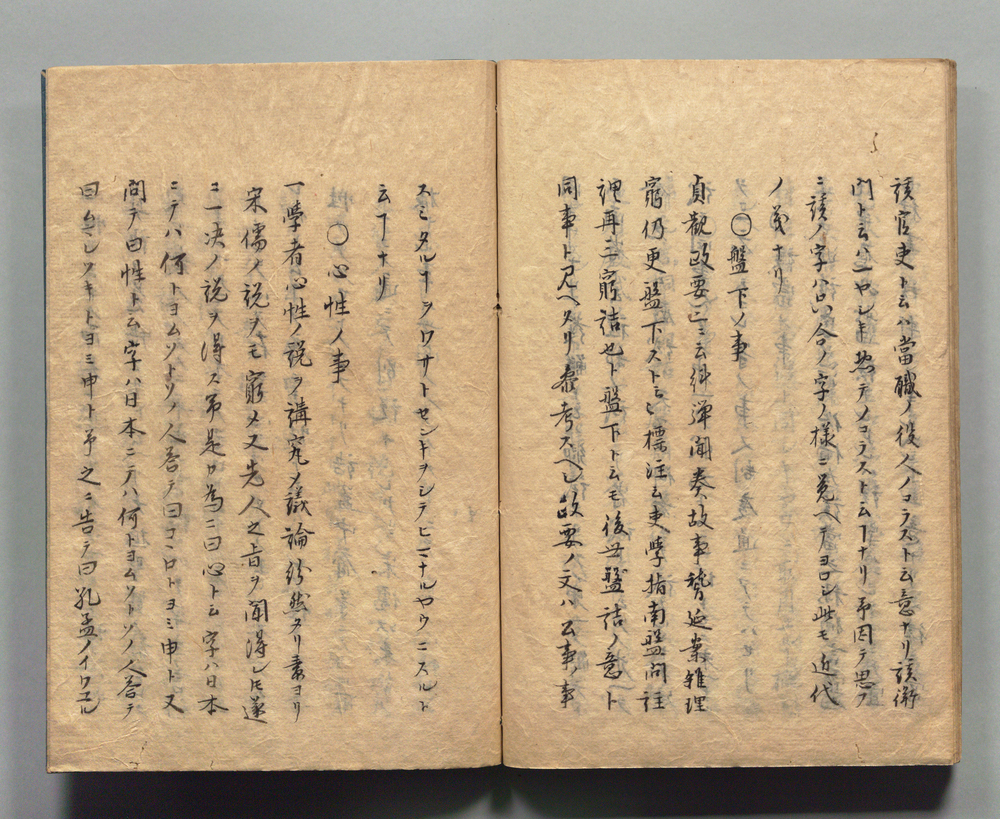 該官吏トハ當職ノ役人ノコラスト云意ナリ該衙
門ト云ハ一ヤシキ惣テノコラスト云ヿナリ予因テ思フ
ニ該ノ字ハ凢合ノ字ノ様ニ覚ヘテヨロシ此モ近代
ノ義ナリ
〇盤下ノ事
貞觀政要ニ云糾弾聞奏故事稽延案雖理
窮仍更盤下ストミユ標注云吏學指南盤問註
謂再三窮詰也ト盤下ト云モ後世盤詰ノ意ト
同事ト見ヘタリ参考スヘシ政要ノ文ハ公事ノ事
スミタルヿヲワサトセンキヲシテヒマナルヤウニスルト
云ヿナリ
〇心性ノ事
一學者心性ノ説ヲ講究メ議論紛然タリ素ヨリ
宋儒ノ説ヲモ窮メ又先人之旨ヲ聞得レ𪜈遂
ニ一决ノ説ヲ得ス予是カ為ニ曰心ト云字ハ日本
ニテハ何トヨムソトソノ人答テ曰コヽロトヨミ申ト又
問テ曰性ト云字ハ日本ニテハ何トヨムソトソノ人答テ
曰ムマレツキトヨミ申ト予之ニ告テ曰孔孟ノイワユル